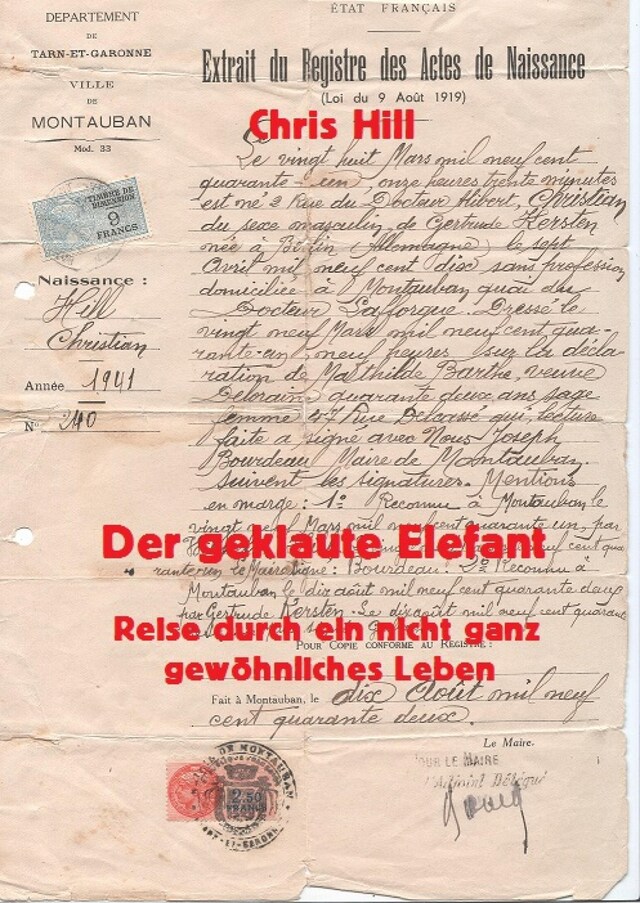 DEPARTEMENT
DE
TARN-ET-GARONNE
VILLE
DE
MONTAUBAN
Mod. 33
TIMBRE DE
DIMENSION
9
FRANCS
Naissance :
Hill
Christian
Année 1941
N° 240
ÉTAT FRANÇAIS
Extrait du Registre des Actes de Naissance
(Loi du 9 Août 1919)
Chris Hill
Le vingt huit Mars mil neuf cent
quarante-un, onze heures trente minutes
est né 2 Rue du Docteur Alibert, Christian
du sexe masculin de Gertrude Kersten
née à Berlin (Allemagne) le sept
Avril mil neuf cent dix sans profession
domiciliée à Montauban quai du
Docteur Lafforgue. Dressé le
vingt neuf Mars mil neuf cent qua-
rante-un, neuf heures sur la décla
ration de Mathilde Barthe, veuve
Deloraine quarante deux ans sage
femme 47 Rue Delcassé qui, lecture
faite a signé avec Nous Joseph
Bourdeau Maire de Montauban.
Suivent les signatures. Mentions
en marge : 1° Reconnu à Montauban le
vingt neuf Mars mil neuf cent quarante un, par
Der geklaute Elefant
neuf cent qua
rante-un le Maire signé : Bourdeau. 2° Reconnu à
Montauban le dix août mil neuf cent quarante deux
par Gertrude Kersten. Le dix août mil neuf cent quarante
Reise durch ein nicht ganz
POUR COPIE CONFORME AU REGISTRE :
gewöhnliches Leben
Fait à Montauban, le dix Août mil neuf
cent quarante deux.
Le Maire.
POUR LE MAIRE
l'Adjoint Délégué
DE MONTAUBAN
2.50
FRANCS
TARN-ET-GARONNE